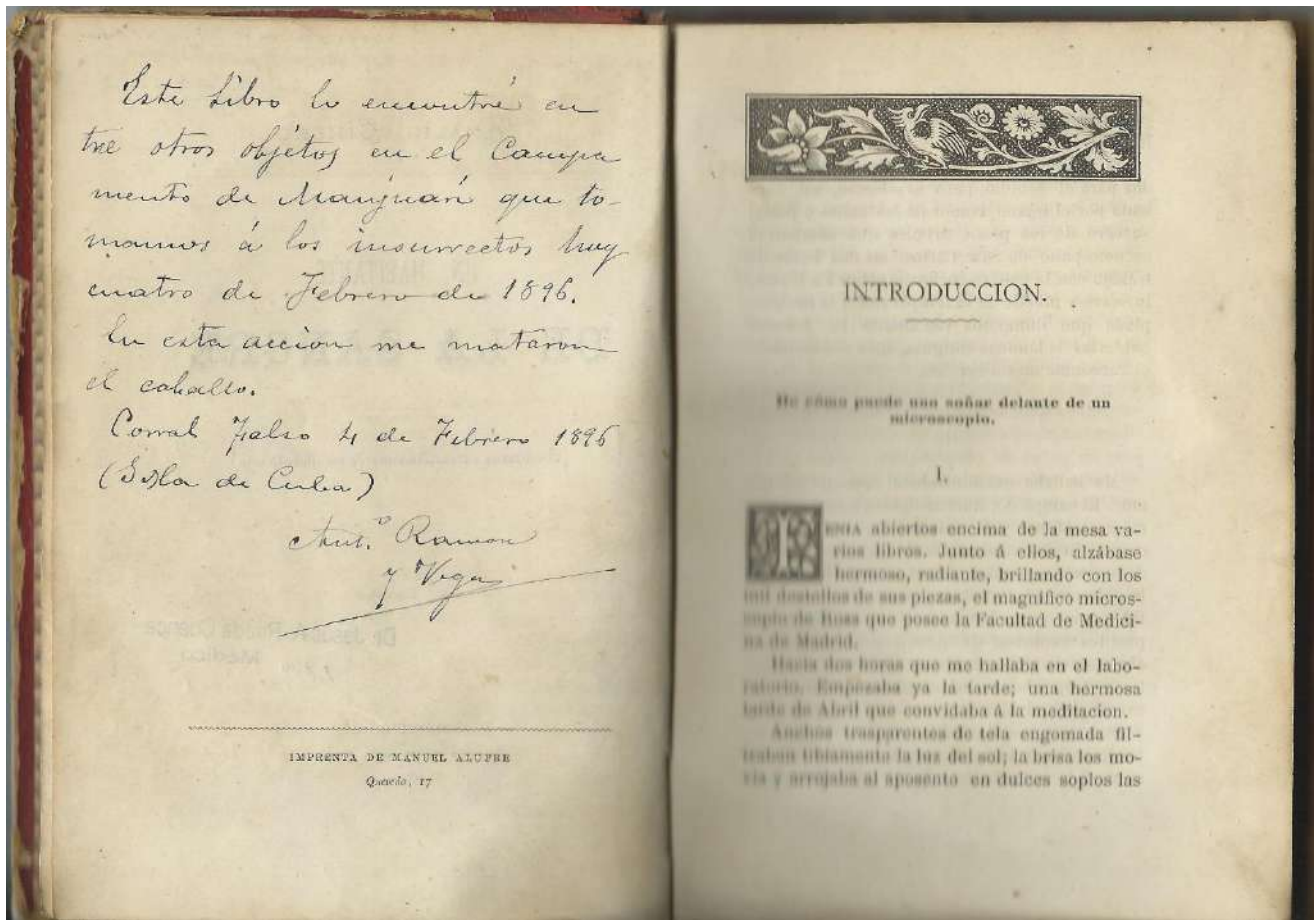 Este Libro lo encontré en
tre otros objetos en el Campa
mento de Manjuarí que to-
mamos á los insurrectos hoy
cuatro de Febrero de 1896.
En esta accion me mataron
el caballo.
Corral Falso 4 de Febrero 1896
(Isla de Cuba)
Ant.º Ramon
y Vega
IMPRENTA DE MANUEL ALUFRE
Quevedo, 17
INTRODUCCION.
De cómo puede uno soñar delante de un
microscopio.
I.
TENIA abiertos encima de la mesa va-
rios libros. Junto á ellos, alzábase
hermoso, radiante, brillando con los
mil destellos de sus piezas, el magnífico micros-
copio de Ross que posee la Facultad de Medici-
na de Madrid.
Hacia dos horas que me hallaba en el labo-
ratorio. Empezaba ya la tarde; una hermosa
tarde de Abril que convidaba á la meditacion.
Anchos trasparentes de tela engomada fil-
traban tibiamente la luz del sol; la brisa los mo-
via y arrojaba al aposento en dulces soplos las